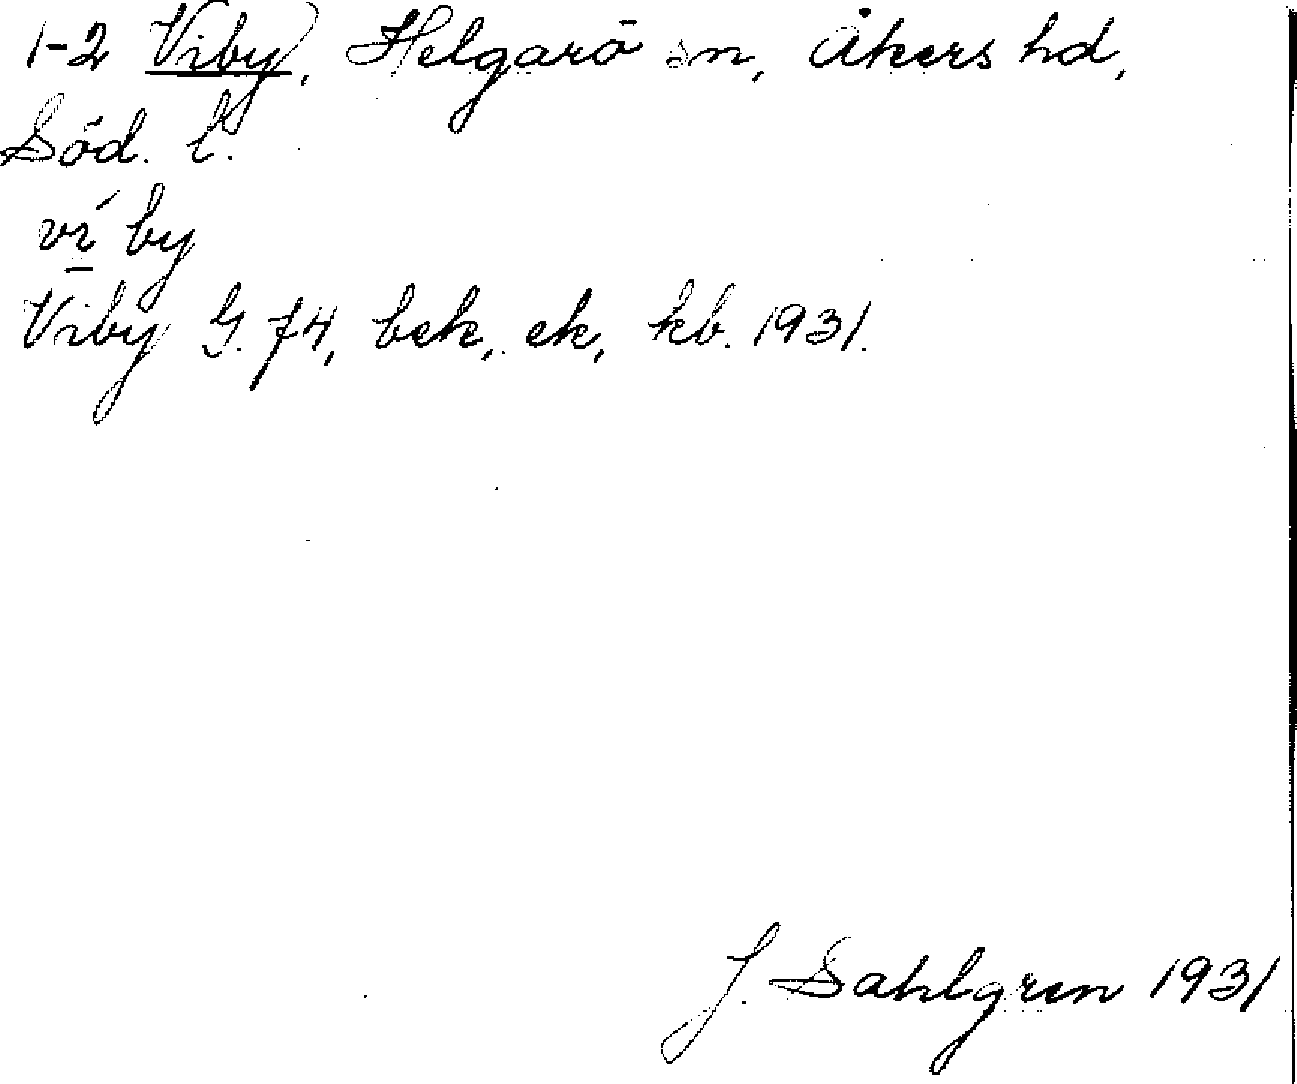 1-2 Viby, Helgarö sn, Åkers hd,
Söd. l.
ví by
Viby G. 74, bek, ek, kb. 1931.
J. Sahlgren 1931